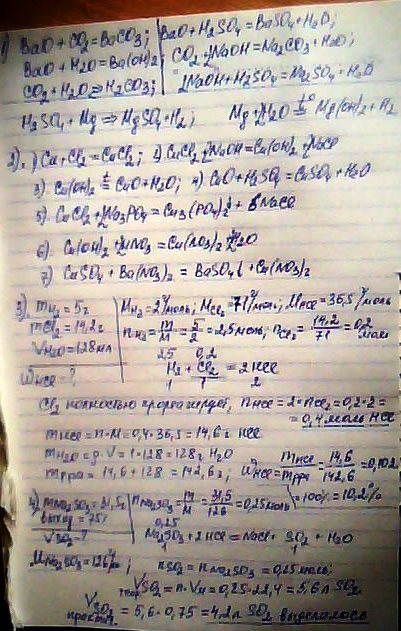 1) BaO + CO2 = BaCO3;
BaO + H2O = Ba(OH)2
CO2 + H2O ⇒ H2CO3;
BaO + H2SO4 = BaSO4 + H2O;
CO2 + 2NaOH = Na2CO3 + H2O;
2NaOH + H2SO4 = Na2SO4 + H2O
H2SO4 + Mg ⇒ MgSO4 + H2; Mg + 2H2O = t° Mg(OH)2 + H2
2). 1) Cu + Cl2 = CuCl2; 2) CuCl2 + 2NaOH = Cu(OH)2 + 2NaCl
3) Cu(OH)2 =t CuO + H2O; 4) CuO + H2SO4 = CuSO4 + H2O
5) CuCl2 + 2Na3PO4 = Cu3(PO4)2↓ + 6NaCl
6) Cu(OH)2 + 2HNO3 = Cu(NO3)2 + 2H2O
7) CuSO4 + Ba(NO3)2 = BaSO4↓ + Cu(NO3)2
3) mH2 = 5г
mCl2 = 14,2г
VH2O = 128мл
WHCl = ?
MH2 = 2г/моль; MCl2 = 71г/моль; MHCl = 36,5г/моль
nH2 = m/M = 5/2 = 2,5моль; nCl2 = 14,2/71 = 0,2 моль
2,5 0,2
H2 + Cl2 = 2HCl
1 1 2
Cl2 полностью прореагирует, nHCl = 2·nCl2 = 0,2·2 =
= 0,4 моль HCl
mHCl = n·M = 0,4·36,5 = 14,6г HCl
mH2O = ρ·V = 1·128 = 128г H2O
mрра = 14,6 + 128 = 142,6г; WHCl = mHCl/mрра = 14,6/142,6 = 0,102
·100% = 10,2%
4) mNa2SO3 = 31,5г
выход = 75%
VSO2 - ?
nNa2SO3 = m/M = 31,5/126 = 0,25моль
0,25
Na2SO3 + 2HCl = NaCl + SO2 + H2O
1 1
MNa2SO3 = 126г/м; nSO2 = nNa2SO3 = 0,25моль;
VSO2 теор = n·Vм = 0,25·22,4 = 5,6л SO2
VSO2 практ. = 5,6·0,75 = 4,2л SO2 выделилось